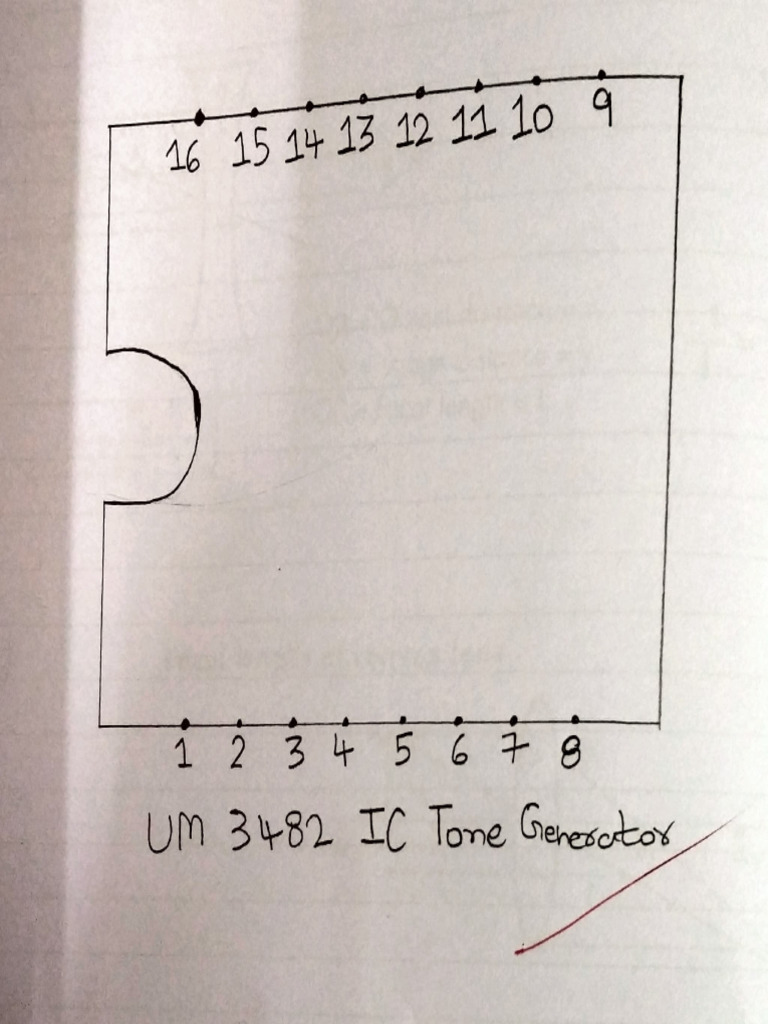 16 15 14 13 12 11 10 9
1 2 3 4 5 6 7 8
UM 3482 IC Tone Generator